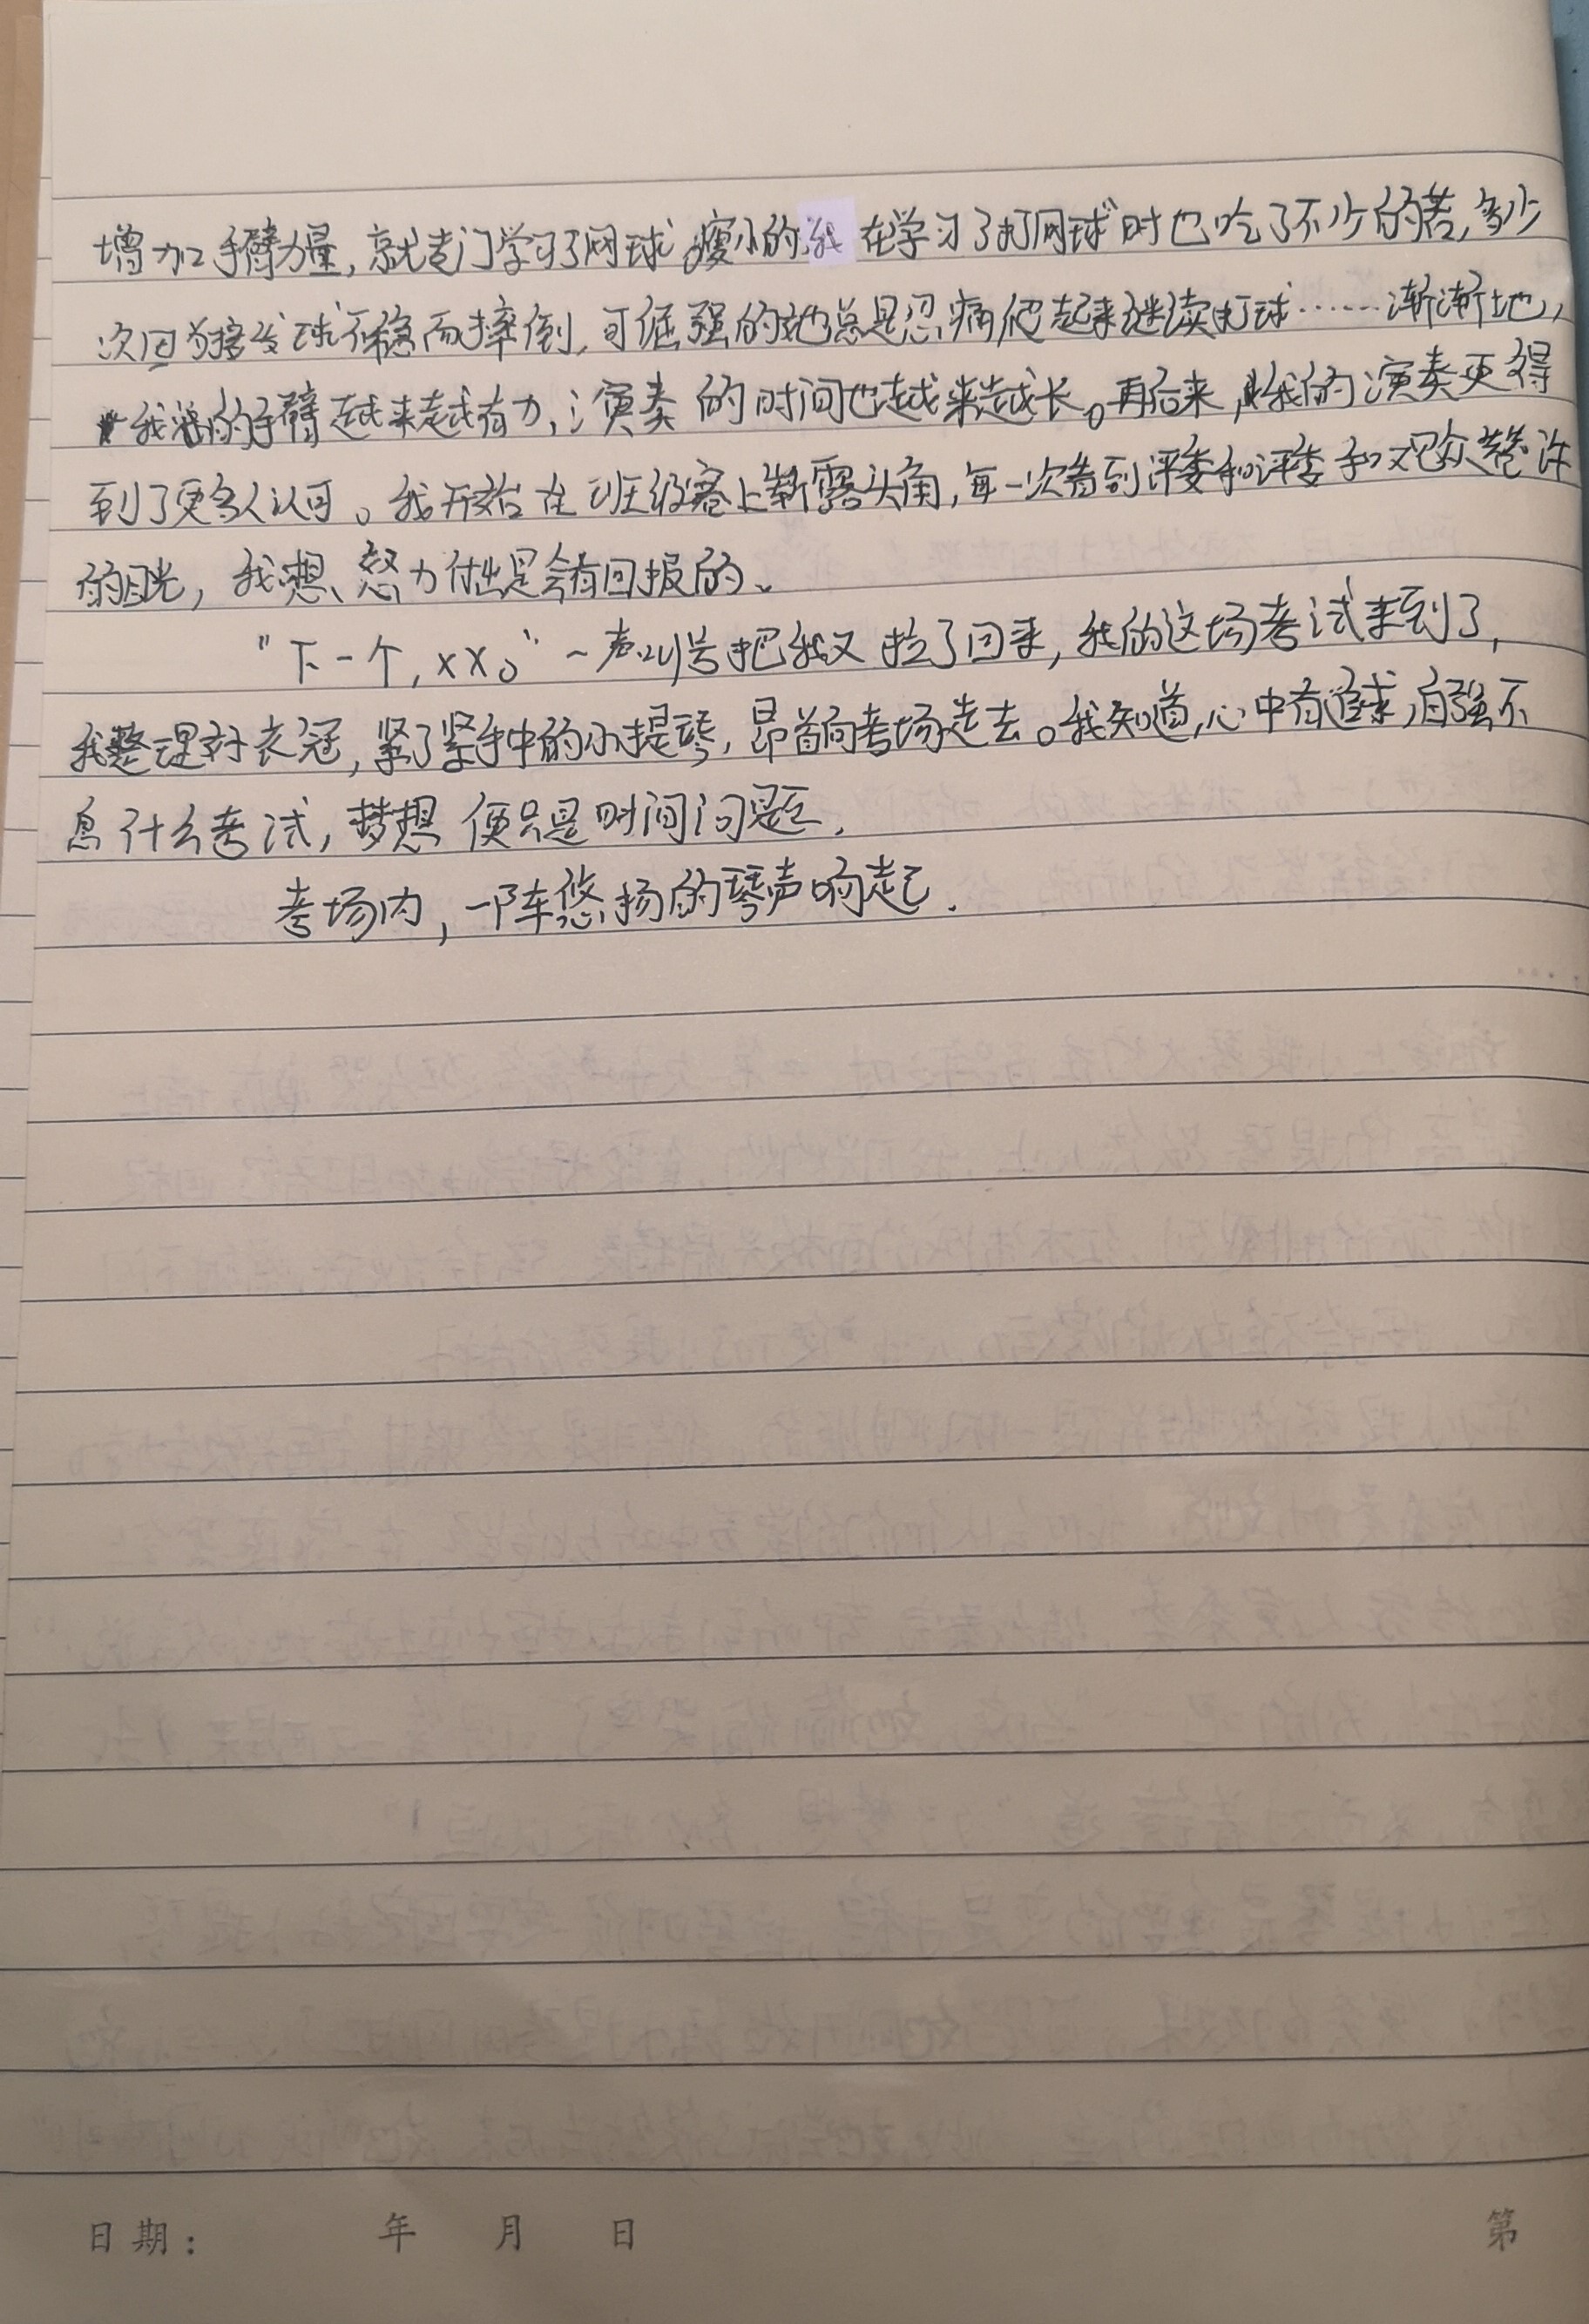 增加手臂力量，就专门学习了网球。瘦小的我在学习了打网球时也吃了不少的苦，多少
次因为接发球不稳而摔倒，可倔强的她总是忍痛爬起来继续打球……渐渐地，
我的手臂越来越有力，演奏的时间也越来越长。再后来，我的演奏更得
到了更多人认可。我开始在班级赛上崭露头角，每一次看到评委和评委和观众赞许
的目光，我想，努力付出是会有回报的。
“下一个，xx。”一声叫号把我又拉了回来，我的这场考试来到了，
我整理好衣冠，紧了紧手中的小提琴，昂首向考场走去。我知道，心中有追求，自强不
息什么考试，梦想便只是时间问题．
考场内，一阵悠扬的琴声响起．
日期： 年 月 日 第